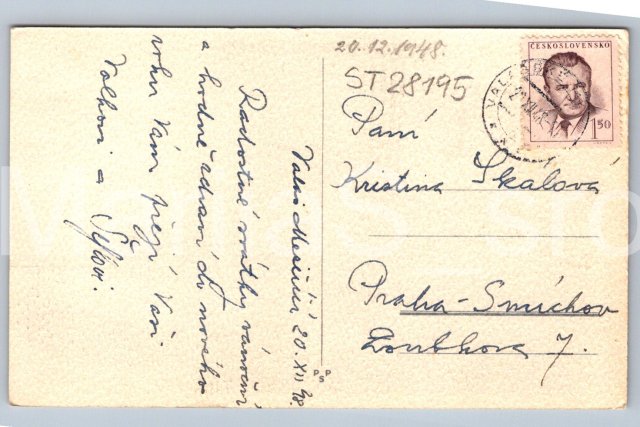 20.12.1948.
ST 28195
ČESKOSLOVENSKO
1.50
Valaš. Meziříčí 20. XII 48.
Radostné svátky vánoční
a hodně zdraví do nového
roku Vám přejí Vaši
a
Paní
Kristina Skálová
Praha-Smíchov
7.